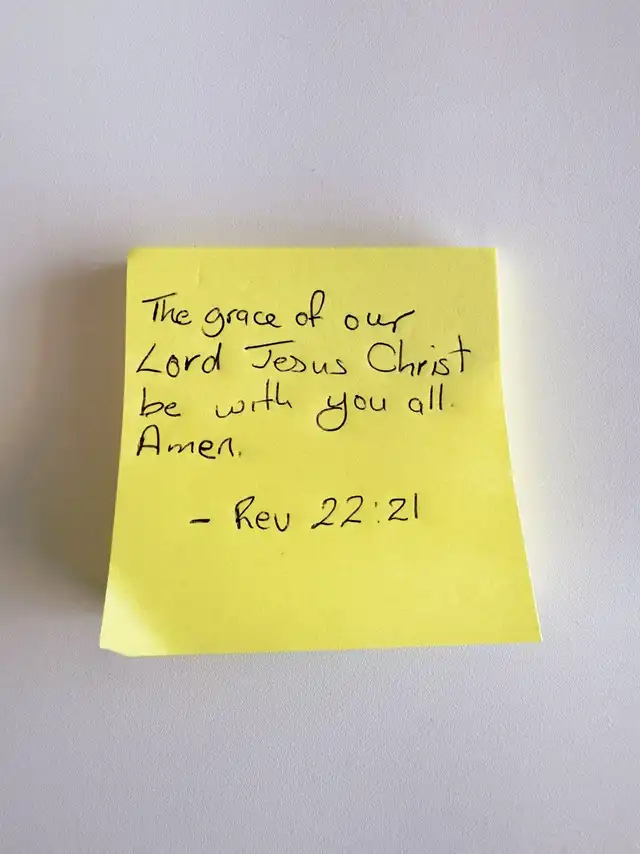 The grace of our
Lord Jesus Christ
be with you all.
Amen.
- Rev 22:21